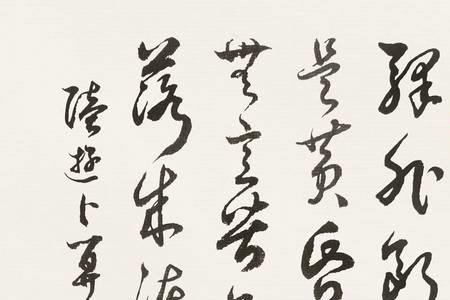 驛外斷
是黄昏
無意苦
落成泥
陸游卜算